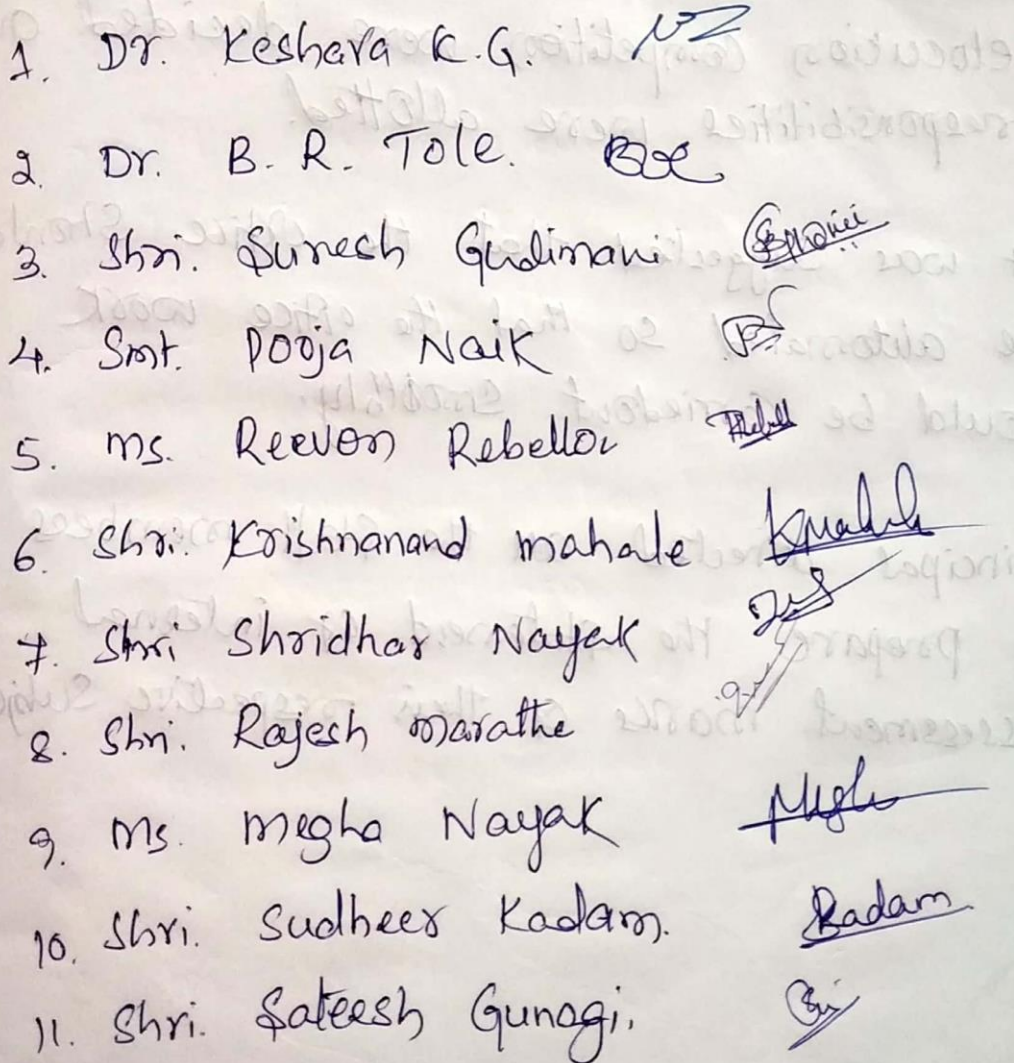 1. Dr. Keshava K.G.
2. Dr. B. R. Tole.
3. Shri. Suresh Gudimani
4. Smt. Pooja Naik
5. Ms. Reevon Rebellow
6. Shri. Krishnanand Mahale
7. Shri Shridhar Nayak
8. Shri. Rajesh Marathe
9. Ms. Megha Nayak
10. Shri. Sudheer Kadam. Kadam
11. Shri. Sateesh Gunagi.